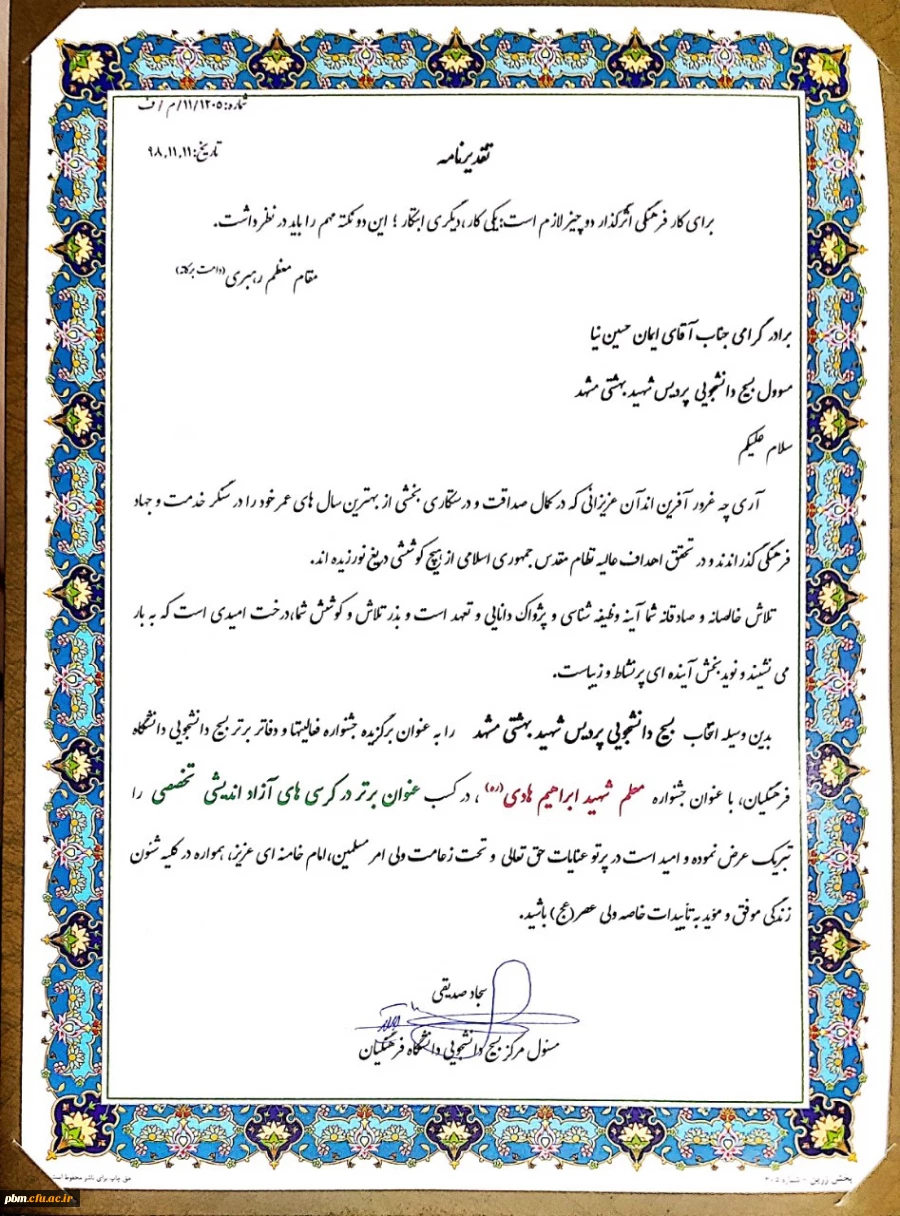 شماره: ۱۱/۱۲۰۵/م/ف
تاریخ: ۹۸.۱۱.۱۱
تقدیرنامه
برای کار فرهنگی اثرگذار دو چیز لازم است: یکی کار، دیگری ابتکار؛ این دو نکته مهم را باید در نظر داشت.
مقام معظم رهبری (دامت برکاته)
برادر گرامی جناب آقای ایمان حسین نیا
مسوول بسیج دانشجویی پردیس شهید بهشتی مشهد
سلام علیکم
آری چه غرور آفرین اند آن عزیزانی که در کمال صداقت و درستکاری بخشی از بهترین سال های عمر خود را در سنگر خدمت و جهاد
فرهنگی گذراندند و در تحقق اهداف عالیه نظام مقدس جمهوری اسلامی از هیچ کوششی دریغ نورزیده اند.
تلاش خالصانه و صادقانه شما آینه وظیفه شناسی و پژواک دانایی و تعهد است و بذر تلاش و کوشش شما، درخت امیدی است که به بار
می نشیند و نوید بخش آینده ای پر نشاط و زیباست.
بدین وسیله انتخاب بسیج دانشجویی پردیس شهید بهشتی مشهد را به عنوان برگزیده جشنواره فعالیتها و دفاتر برتر بسیج دانشجویی دانشگاه
فرهنگیان، با عنوان جشنواره معلم شهید ابراهیم هادی (ره)، در کسب عنوان برتر در کرسی های آزاد اندیشی تخصصی را
تبریک عرض نموده و امید است در پرتو عنایات حق تعالی و تحت زعامت ولی امر مسلمین، امام خامنه ای عزیز، همواره در کلیه شئون
زندگی موفق و مؤید به تأییدات خاصه ولی عصر (عج) باشید.
سجاد صدیقی
مسئول مرکز بسیج دانشجویی دانشگاه فرهنگیان
پخش زرین - شماره ۲۰۵
حق چاپ برای ناشر محفوظ است
pbm.cfu.ac.ir